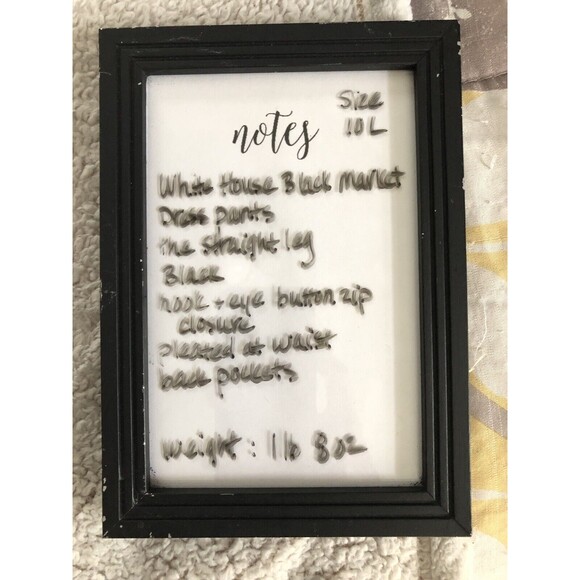 Size
10L
notes
White House Black Market
Dress pants
the straight leg
Black
hook + eye button zip
closure
pleated at waist
back pockets
weight: 1 lb 8 oz